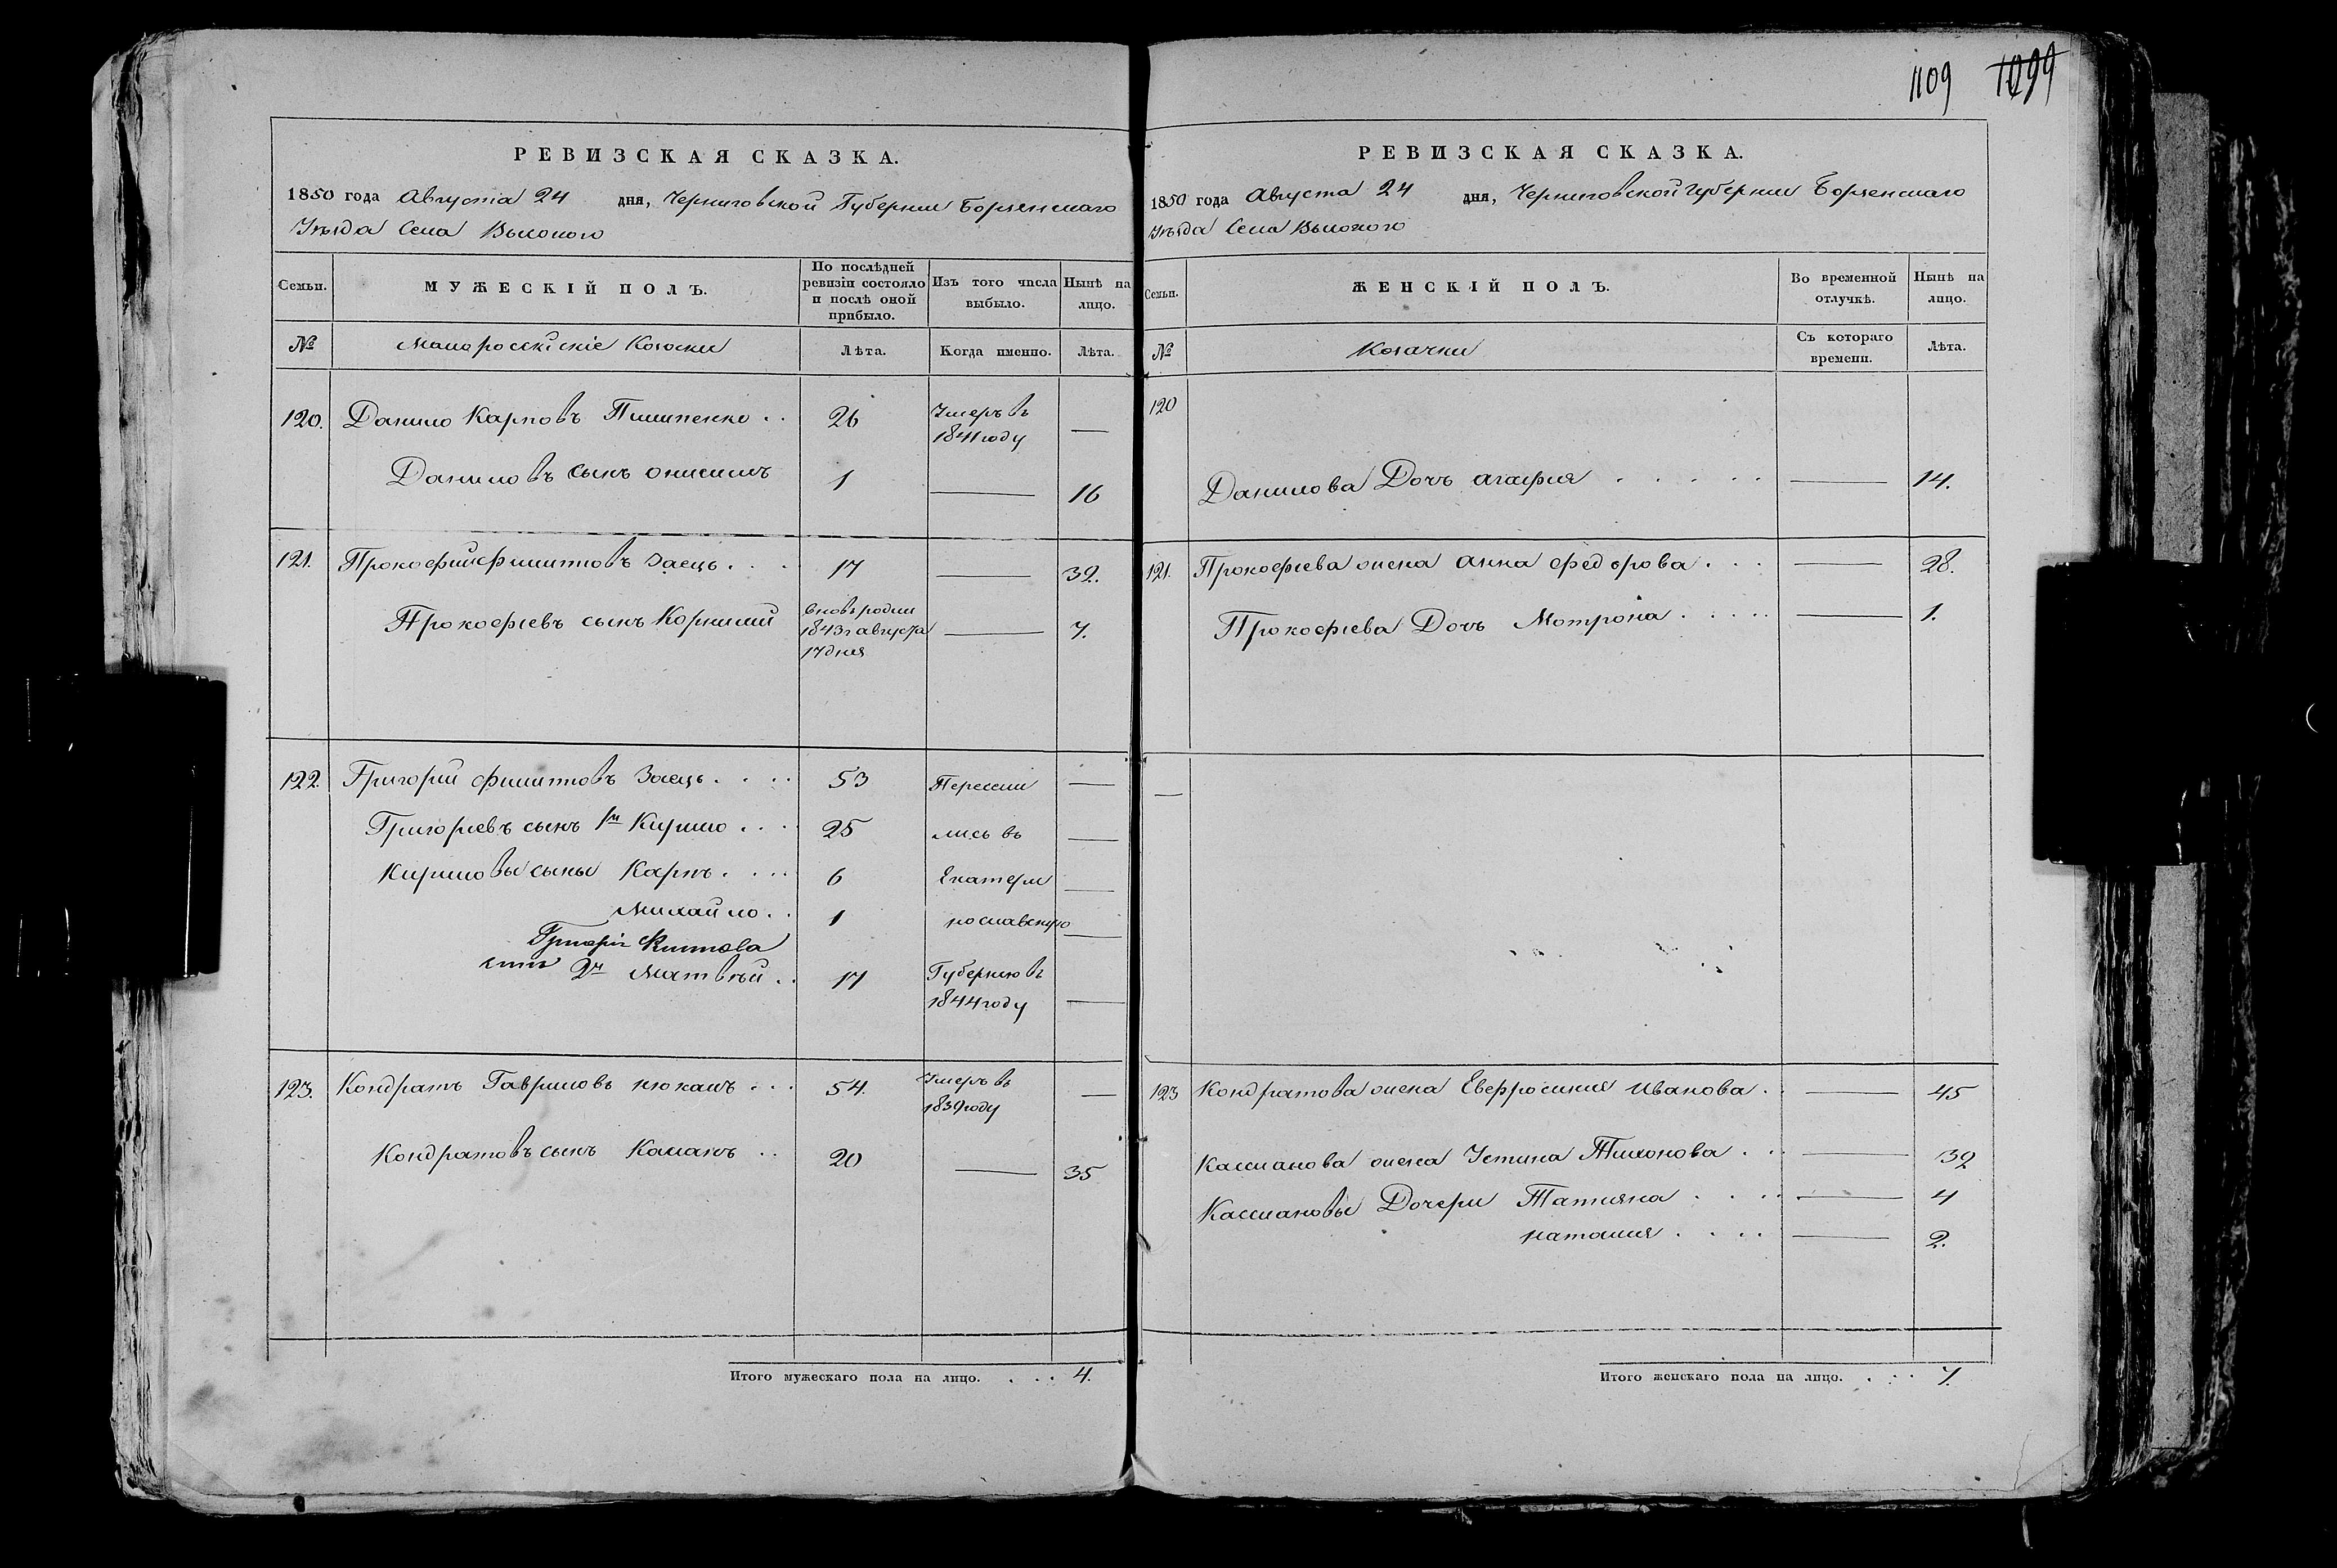 1109 1099
РЕВИЗСКАЯ СКАЗКА.
1850 года Августа 24 дня, Черниговской Губернии Борзенскаго
Уѣзда Села Высокого
Семьи.
МУЖЕСКІЙ ПОЛЪ.
По послѣдней ревизіи состояло и послѣ оной прибыло.
Изъ того числа выбыло.
Нынѣ на лицо.
№
Малороссійскіе Козаки
Лѣта.
Когда именно.
Лѣта.
120. Данило Карповъ Пилипенко . . 26 Умеръ въ 1841 году —
Даниловъ сынъ онисимъ 1 — 16
121. Прокофий филиповъ Заецъ . . . 17 — 32.
Прокофиевъ сынъ Корнилий вновь родил 1843 г августа 17 дня — 7.
122. Григорий филиповъ Заецъ . . . . 53 Пересели —
Григориевъ сынъ 1й Кирило . . . 25 лись въ —
Кириловы сыны Карпъ . . . . 6 Екатери —
Михайло . . 1 нославскую —
Григорія Филипова
сынъ 2й Матвѣй . . 17 Губернию въ
1844 году —
123. Кондратъ Гавриловъ . . . 54. Умеръ въ 1839 году —
Кондратовъ сынъ Касиянъ . . 20 — 35
Итого мужескаго пола на лицо. . . . 4.
РЕВИЗСКАЯ СКАЗКА.
1850 года Августа 24 дня, Черниговской Губернии Борзенскаго
Уѣзда Села Высокого
Семьи.
ЖЕНСКІЙ ПОЛЪ.
Во временной отлучкѣ.
Нынѣ на лицо.
№
Козачки
Съ котораго времени.
Лѣта.
120
Данилова Дочъ агафия . . . . . — 14.
121. Прокофиева жена анна федорова . . . — 28.
Прокофиева Дочъ Мотрона . . . . . — 1.
—
123 Кондратова жена Евфросиния Иванова . . — 45
Кассианова жена Устина Тихонова . . . — 32
Кассиановы Дочери Татияна . . . . — 4
наталия . . . . — 2.
Итого женскаго пола на лицо. . . . 7.